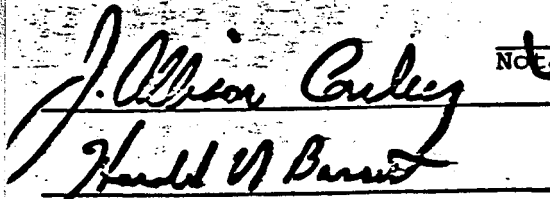 J. Allison Conley Not
Harold N Barrett